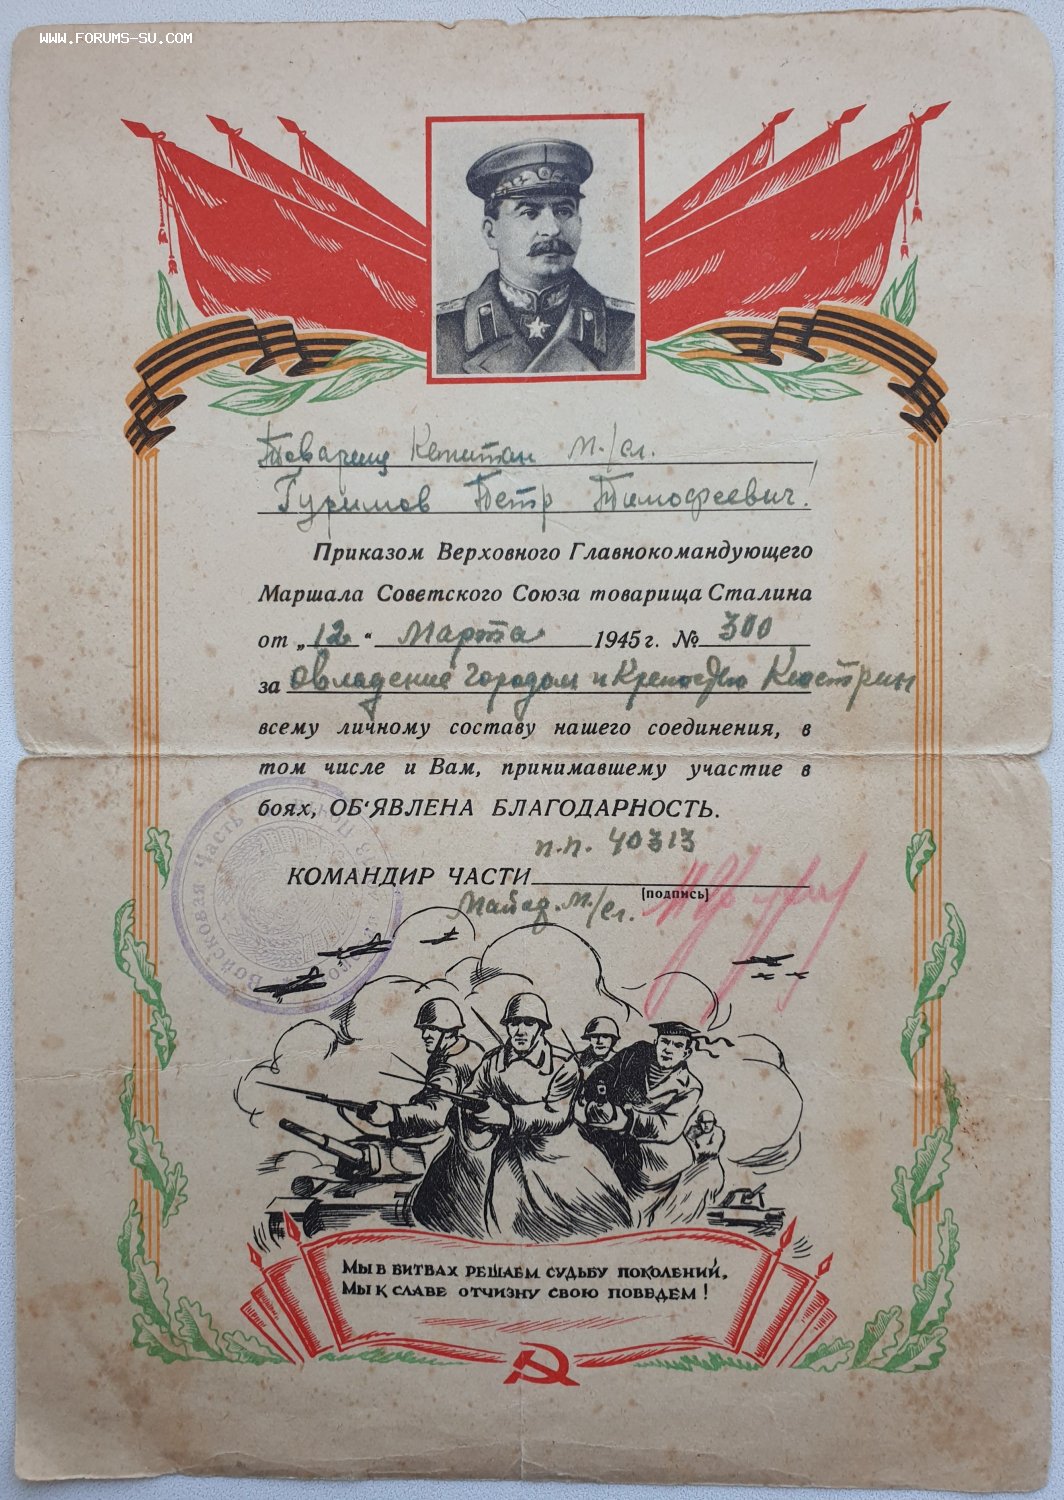 WWW.FORUMS-SU.COM
Товарищ Капитан м./сл.
Гуримов Петр Тимофеевич!
Приказом Верховного Главнокомандующего
Маршала Советского Союза товарища Сталина
от „12“ Марта 1945 г. № 300
за овладение городом и крепостью Кюстрин
всему личному составу нашего соединения, в
том числе и Вам, принимавшему участие в
боях, ОБ'ЯВЛЕНА БЛАГОДАРНОСТЬ.
п.п. 40313
КОМАНДИР ЧАСТИ
(подпись)
Майор м./сл.
Войсковая часть Полевая
МЫ В БИТВАХ РЕШАЕМ СУДЬБУ ПОКОЛЕНИЙ,
МЫ К СЛАВЕ ОТЧИЗНУ СВОЮ ПОВЕДЕМ!